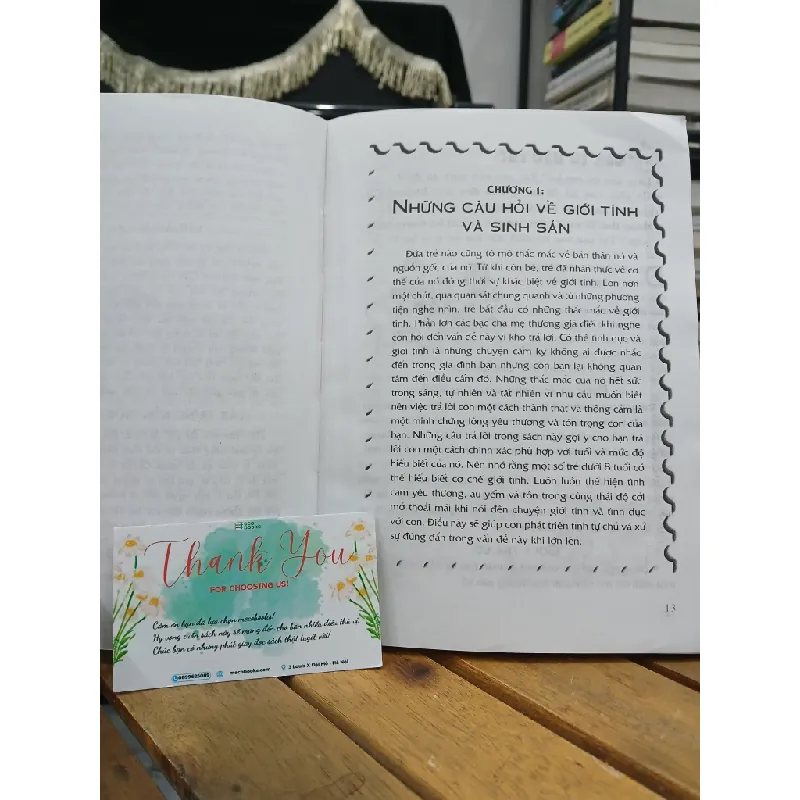 CHƯƠNG 1:
NHỮNG CÂU HỎI VỀ GIỚI TÍNH
VÀ SINH SẢN
Đứa trẻ nào cũng tò mò thắc mắc về bản thân nó và
nguồn gốc của nó. Từ khi còn bé, trẻ đã nhận thức về cơ
thể của nó đồng thời sự khác biệt về giới tính. Lớn hơn
một chút, qua quan sát chung quanh và từ những phương
tiện nghe nhìn, trẻ bắt đầu có những thắc mắc về giới
tính. Phần lớn các bậc cha mẹ thường giả điếc khi nghe
con hỏi đến vấn đề này vì khó trả lời. Có thể tình dục và
giới tính là những chuyện cấm kỵ không ai được nhắc
đến trong gia đình bạn nhưng con bạn lại không quan
tâm đến điều cấm đó. Những thắc mắc của nó hết sức
trong sáng, tự nhiên và tất nhiên vì nhu cầu muốn biết
nên việc trả lời con một cách thành thật và thông cảm là
một minh chứng lòng yêu thương và tôn trọng con của
bạn. Những câu trả lời trong sách này gợi ý cho bạn trả
lời con một cách chính xác phù hợp với tuổi và mức độ
hiểu biết của nó. Nên nhớ rằng một số trẻ dưới 8 tuổi có
thể hiểu biết cơ chế giới tính. Luôn luôn thể hiện tình
cảm yêu thương, âu yếm và tôn trọng cùng thái độ cởi
mở thoải mái khi nói đến chuyện giới tính và tình dục
với con. Điều này sẽ giúp con phát triển tính tự chủ và xử
sự đúng đắn trong vấn đề này khi lớn lên.
13
Thank You
FOR CHOOSING US!
Cảm ơn bạn đã lựa chọn mecobooks!
Hy vọng cuốn sách này sẽ mang đến cho bạn nhiều điều thú vị
Chúc bạn có những phút giây đọc sách thật tuyệt vời!